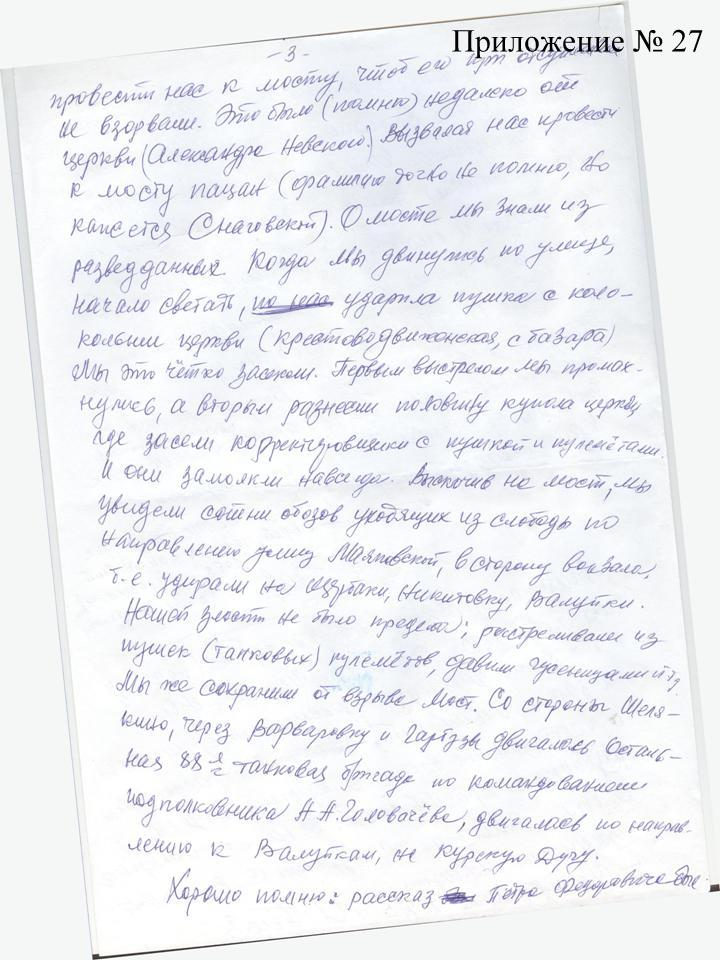 Приложение № 27
- 3 -
провести нас к мосту, чтоб его при
не взорвали. Это было (помню) недалеко от
церкви (Александра Невского). Вызвался нас провести
к мосту пацан (фамилию точно не помню, но
кажется Снаговский). О мосте мы знали из
разведданных. Когда мы двинулись по улице,
начало светать, по нас ударила пушка с коло-
кольни церкви (крестовоздвиженская, с базара)
Мы это чётко засекли. Первым выстрелом мы промах-
нулись, а вторым разнесли половину купола церкви
где засели корректировщики с пушкой и пулемётами.
И они замолкли навсегда. Выскочив на мост, мы
увидели сотни обозов уходящих из слободы по
направлению улиц Маяковской, в сторону вокзала,
т.е. удирали на Щербаки, Никитовку, Валуйки.
Нашей злости не было предела; расстреливали из
пушек (танковых) пулемётов, давили гусеницами и т.д.
Мы же сохранили от взрыва мост. Со стороны Шеля-
кино, через Варваровку и двигалась осталь-
ная 88я танковая бригада по командованием
подполковника Головачёва, двигалась по направ-
лению к Валуйкам, на Курскую Дугу.
Хорошо помню: рассказ Петра Федоровича